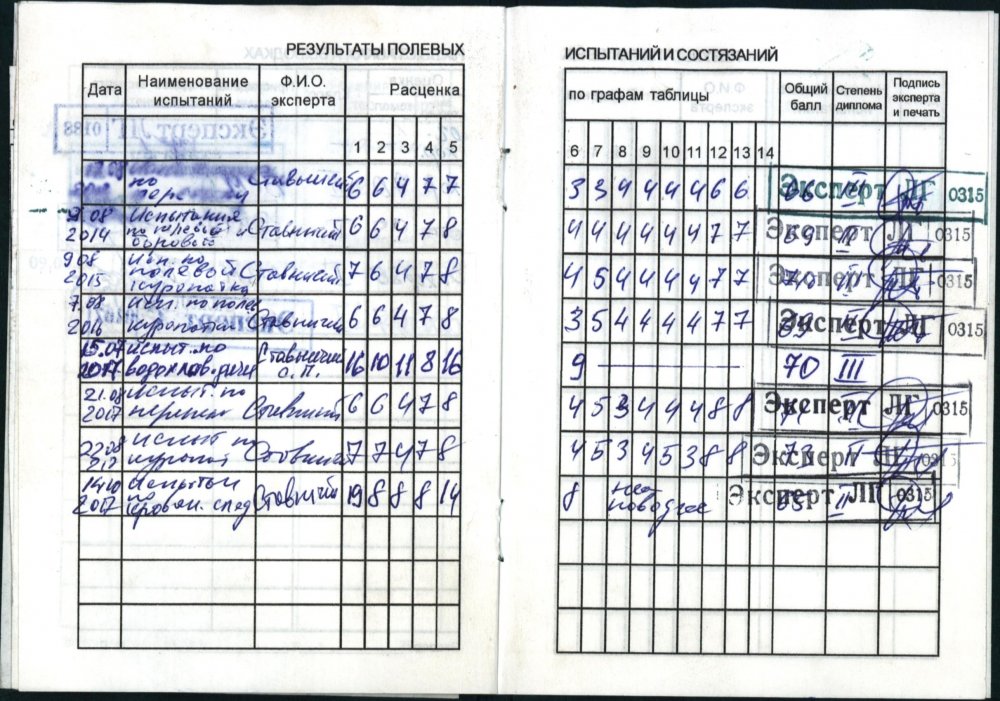 РЕЗУЛЬТАТЫ ПОЛЕВЫХ
Дата Наименование испытаний Ф.И.О. эксперта Расценка
1 2 3 4 5
по Ставничий 6 6 4 7 7
08 2014 Испытание по полевой Ставничий 6 6 4 7 8
9.08 2015 исп. по полевой куропатке Ставничий 7 6 4 7 8
7.08 2016 исп. по полев куропатки Ставничий 6 6 4 7 8
15.07 2017 испыт. по водоплав. дичи Ставничий О.П. 16 10 11 8 16
21.08 2017 испыт. по перепел Ставничий 6 6 4 7 8
22.08 испыт по куропат Ставничий 7 7 4 7 8
14.10 2017 испытан по кровян. след Ставничий 19 8 8 8 14
ИСПЫТАНИЙ И СОСТЯЗАНИЙ
по графам таблицы Общий балл Степень диплома Подпись эксперта и печать
6 7 8 9 10 11 12 13 14
3 3 4 4 4 4 6 6 66 Эксперт ЛГ 0315
4 4 4 4 4 4 7 7 69 II Эксперт ЛГ 0315
4 5 4 4 4 4 7 7 Эксперт ЛГ 0315
3 5 4 4 4 4 7 7 69 Эксперт ЛГ 0315
9 70 III
4 5 3 4 4 4 8 8 Эксперт ЛГ 0315
4 5 3 4 5 3 8 8 73 Эксперт ЛГ 0315
8 на поводке Эксперт ЛГ 0315